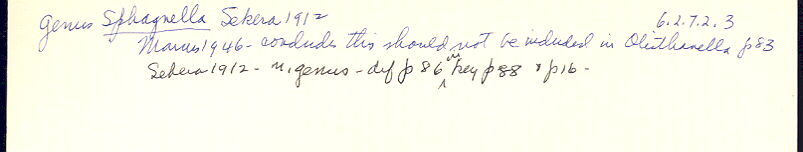 Genus Sphagnella Sekera 1912 6.2.7.2.3
Marcus 1946 - concludes this should not be included in Olisthanella p83
Sekera 1912 - n.genus - def p 86 in key p88 & p16 -